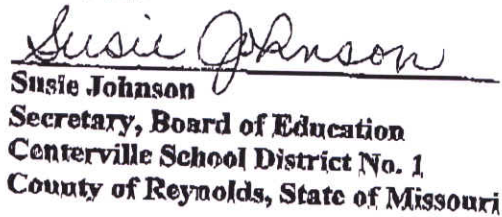 Susie Johnson
Susie Johnson
Secretary, Board of Education
Centerville School District No. 1
County of Reynolds, State of Missouri